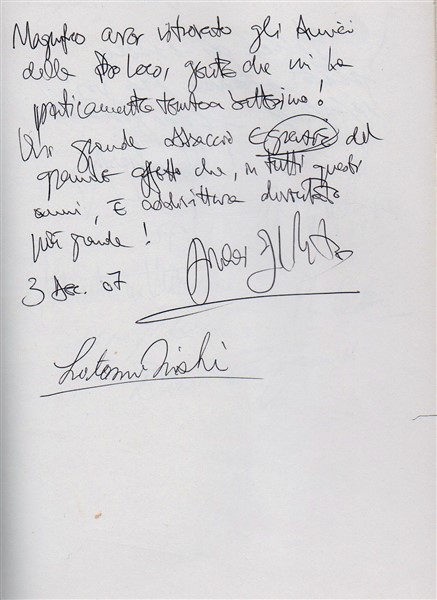 Magnifico aver ritrovato gli Amici
della Pro Loco, gente che mi ha
praticamente tenuto a battesimo!
Un grande abbraccio e grazie del
grande affetto che, in tutti questi
anni, è addirittura diventato
più grande!
3 Dec. 07